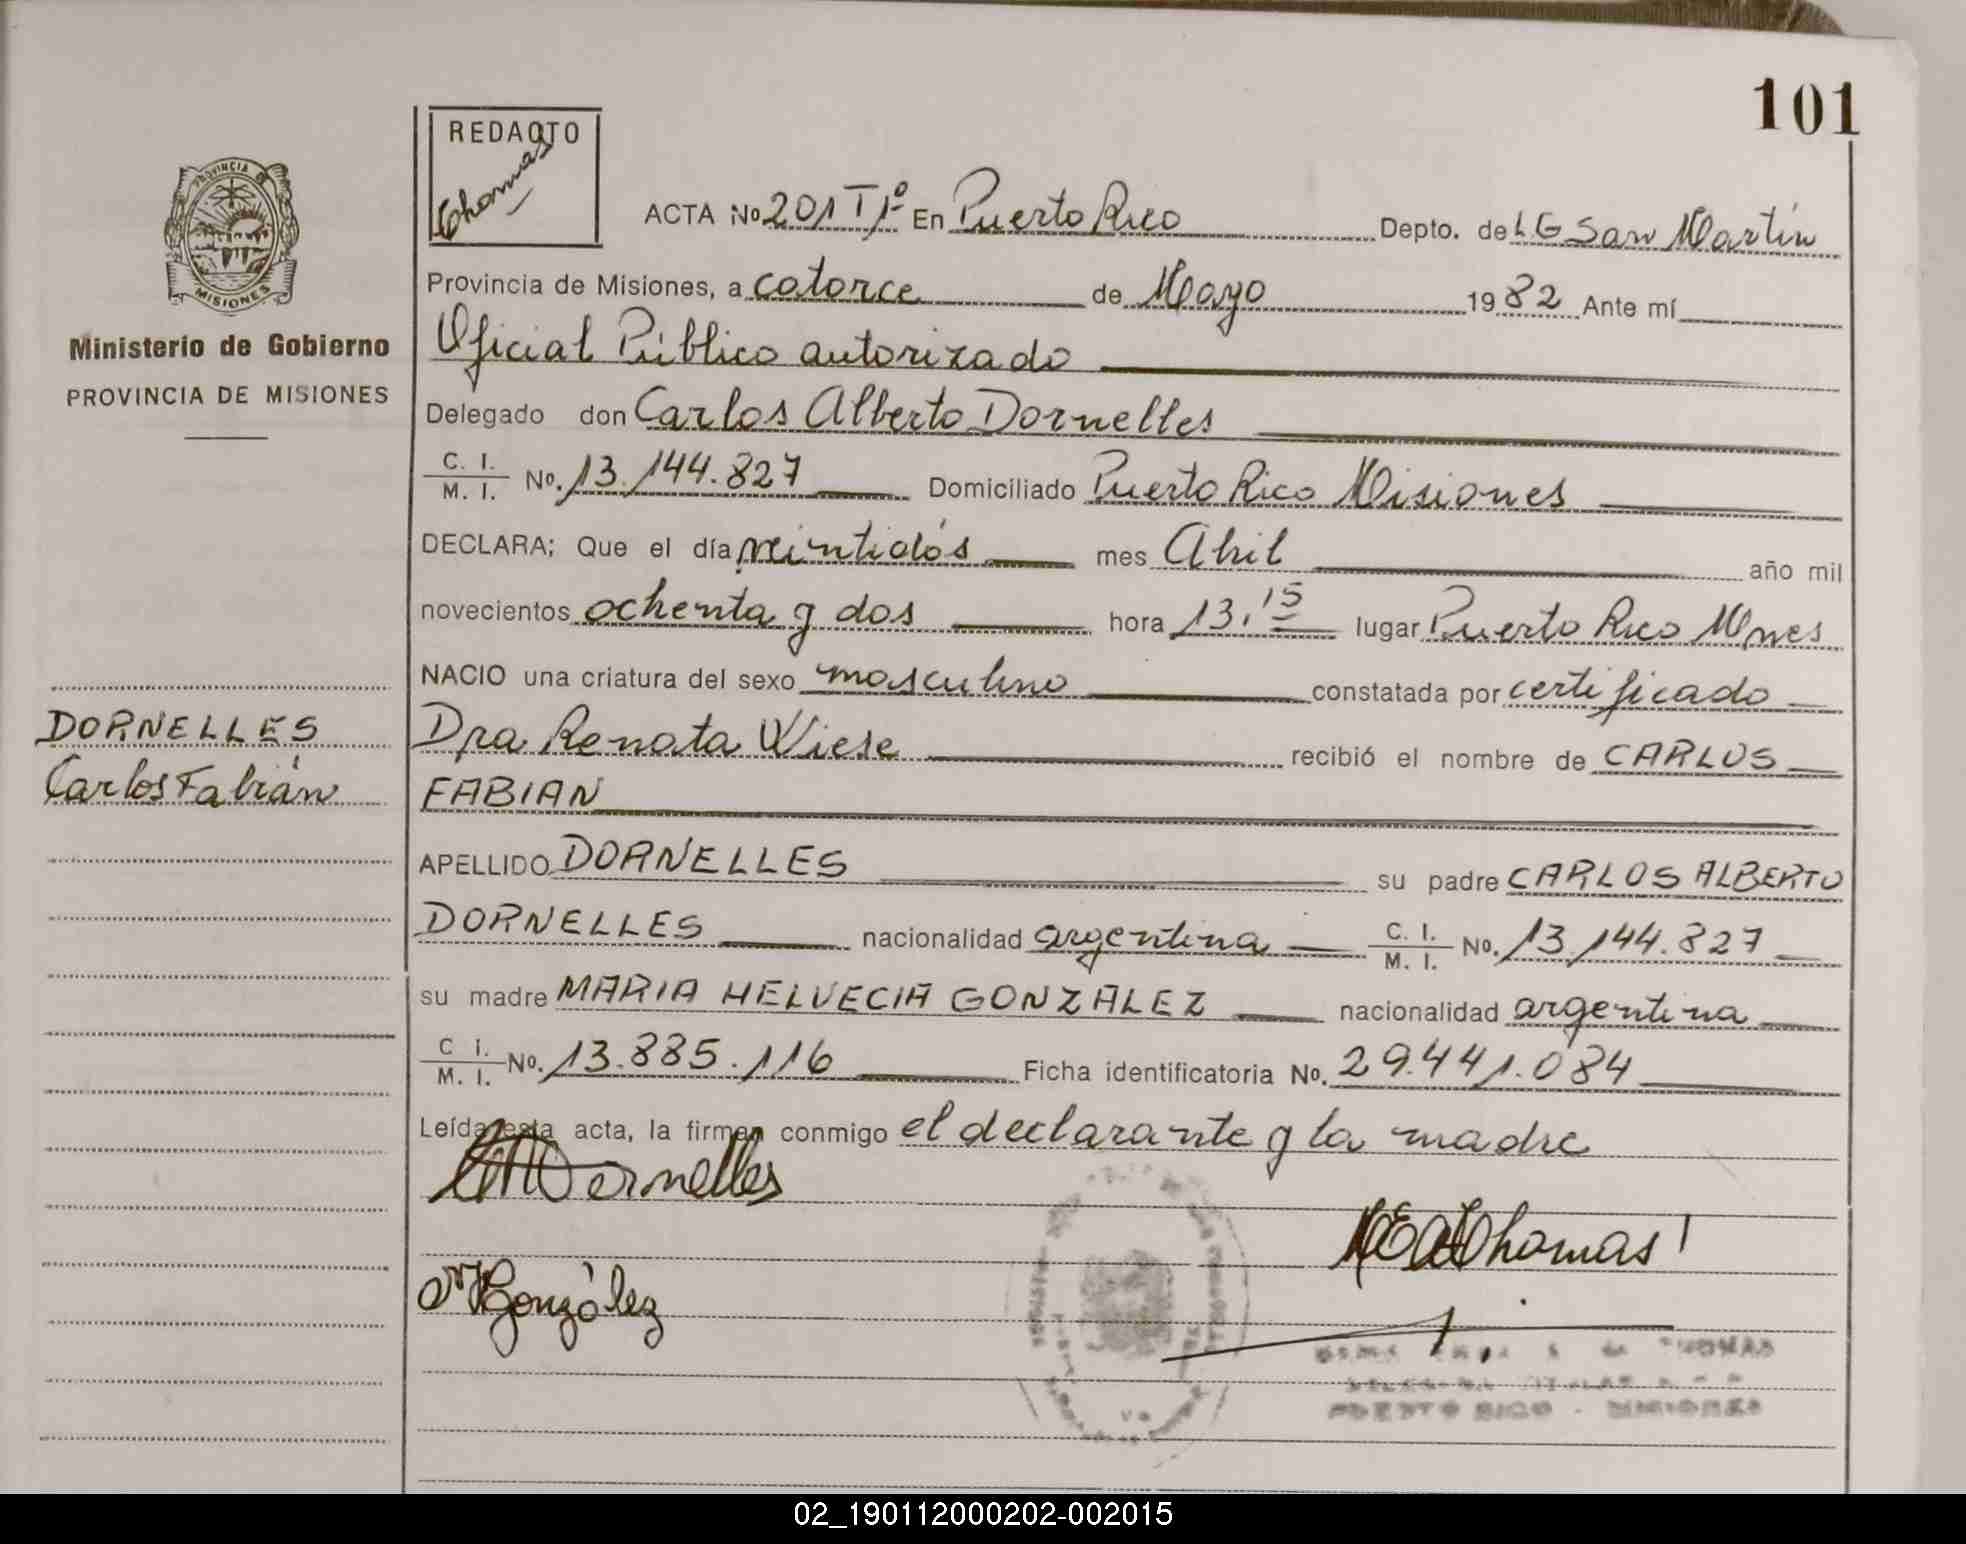 101
REDACTO
Thomas
ACTA No 201 TIº En Puerto Rico Depto. de L G San Martín
PROVINCIA DE
MISIONES
Provincia de Misiones, a catorce de Mayo 1982 Ante mí
Ministerio de Gobierno
PROVINCIA DE MISIONES
Oficial Público autorizado
Delegado don Carlos Alberto Dornelles
C. I. / M. I. No. 13.144.827 Domiciliado Puerto Rico Misiones
DECLARA; Que el día veintidós mes Abril año mil
novecientos ochenta y dos hora 13,15 lugar Puerto Rico Mnes
NACIO una criatura del sexo masculino constatada por certificado
DORNELLES
Carlos Fabián
Dra Renata Wiese recibió el nombre de CARLOS
FABIAN
APELLIDO DORNELLES su padre CARLOS ALBERTO
DORNELLES nacionalidad argentina C. I. / M. I. No. 13.144.827
su madre MARIA HELVECIA GONZALEZ nacionalidad argentina
C I. / M. I. No. 13.885.116 Ficha identificatoria No. 29.441.084
Leída esta acta, la firman conmigo el declarante y la madre
Dornelles
Thomas
González
THOMAS
PUERTO RICO - MISIONES
02_190112000202-002015